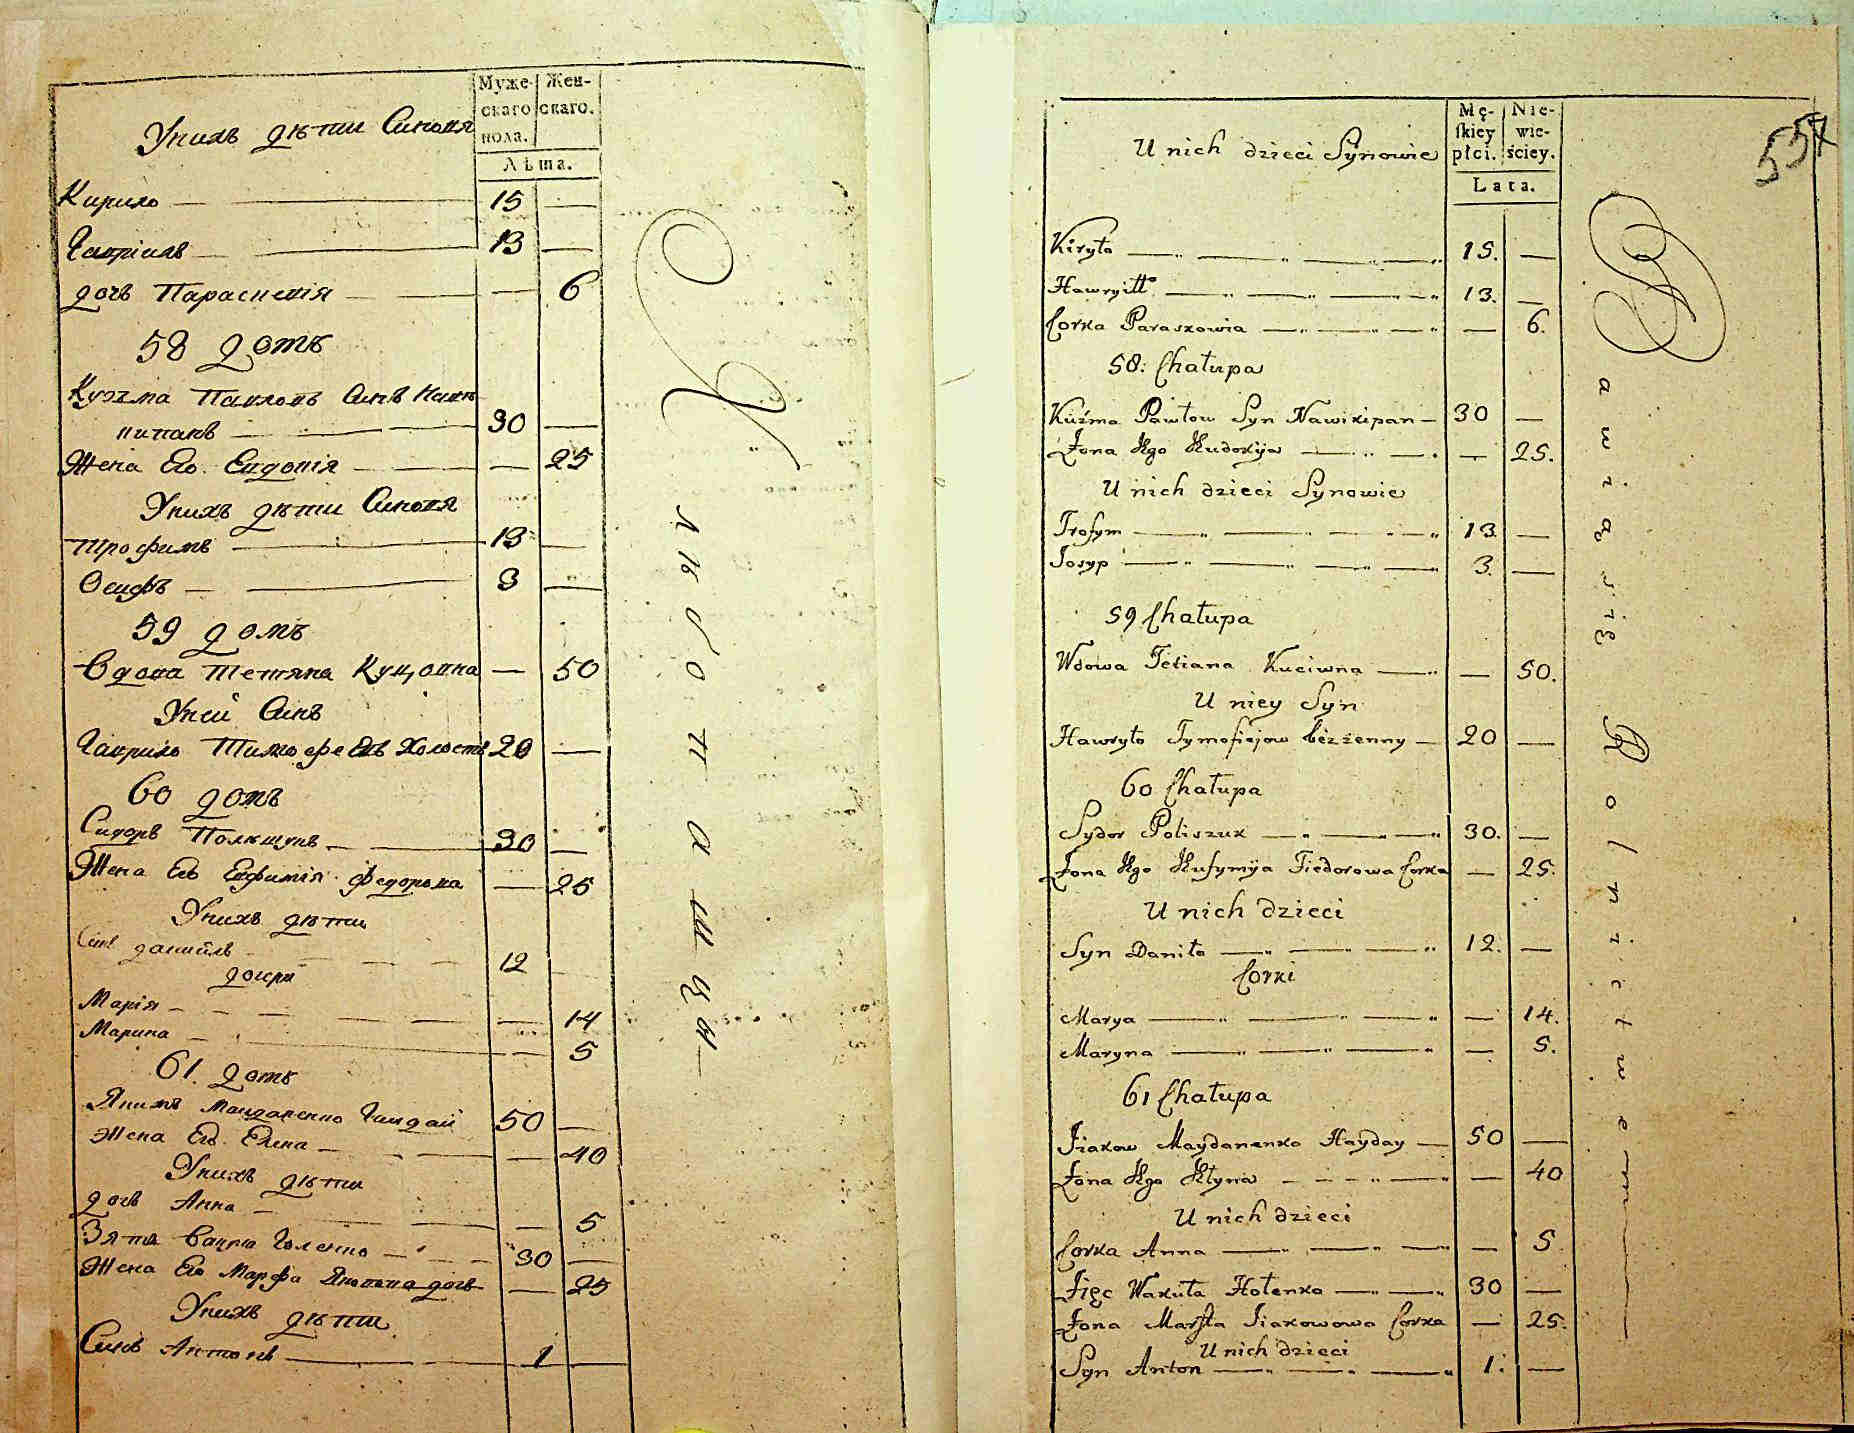 Мужескаго пола.
Женскаго.
Лѣта.
Унихъ дѣти Синовя
Кирило — 15 —
Гавріилъ — 13 —
дочь Параскевія — — 6
58 домъ
Кузма Павловъ Синъ Нави
кипанъ — 30 —
Жена Его Евдокія — — 25
Унихъ дѣти Синовя
Трофимъ — 13 —
Осифъ — 3 —
59 домъ
Вдова Тетяна Куцовна — 50
Уней Синъ
Гаврило Тимофеевъ Холостъ 20 —
60 домъ
Сидоръ Полѣщукъ — 30 —
Жена Его Евфимія Федорова — 25
Унихъ дѣти
Синъ даниилъ — 12
дочери
Марія — — 14
Марина — — 5
61. домъ
Якимъ Майданенко Гайдай 50 —
Жена Его Елена — — 40
Унихъ дѣти
дочь Анна — — 5
Зять Вакула Голенко — 30 —
Жена Его Марфа Яковова дочь — 25
Унихъ дѣти
Синъ Антонъ — 1 —
Хлѣбопашцы
557
Męskiey płci.
Niewieściey.
Lata.
U nich dzieci Synowie
Kiryło — 15. —
Hawryiłł — 13. —
Corka Paraskowia — — 6.
58: Chałupa
Kuźma Pawłow Syn Nawikipan — 30 —
Żona Jego Jewdokija — — 25.
U nich dzieci Synowie
Trofym — 13. —
Josyp — 3. —
59 Chałupa
Wdowa Tetiana Kuciwna — — 50.
U niey Syn
Hawryło Tymofiejow bezżenny — 20 —
60 Chałupa
Sydor Poliszuk — 30. —
Żona Jego Jeufymija Fiedorowa Corka — 25.
U nich dzieci
Syn Daniło — 12. —
Corki
Marya — — 14.
Maryna — — 5.
61 Chałupa
Jiakow Maydanenko Hayday — 50 —
Żona Jego Jełyna — — 40
U nich dzieci
Corka Anna — — 5
Zięc Wakuła Hołenko — 30 —
Żona Marfta Jiakowowa Corka — 25.
U nich dzieci
Syn Anton — 1. —
Bawią się Rolnictwem